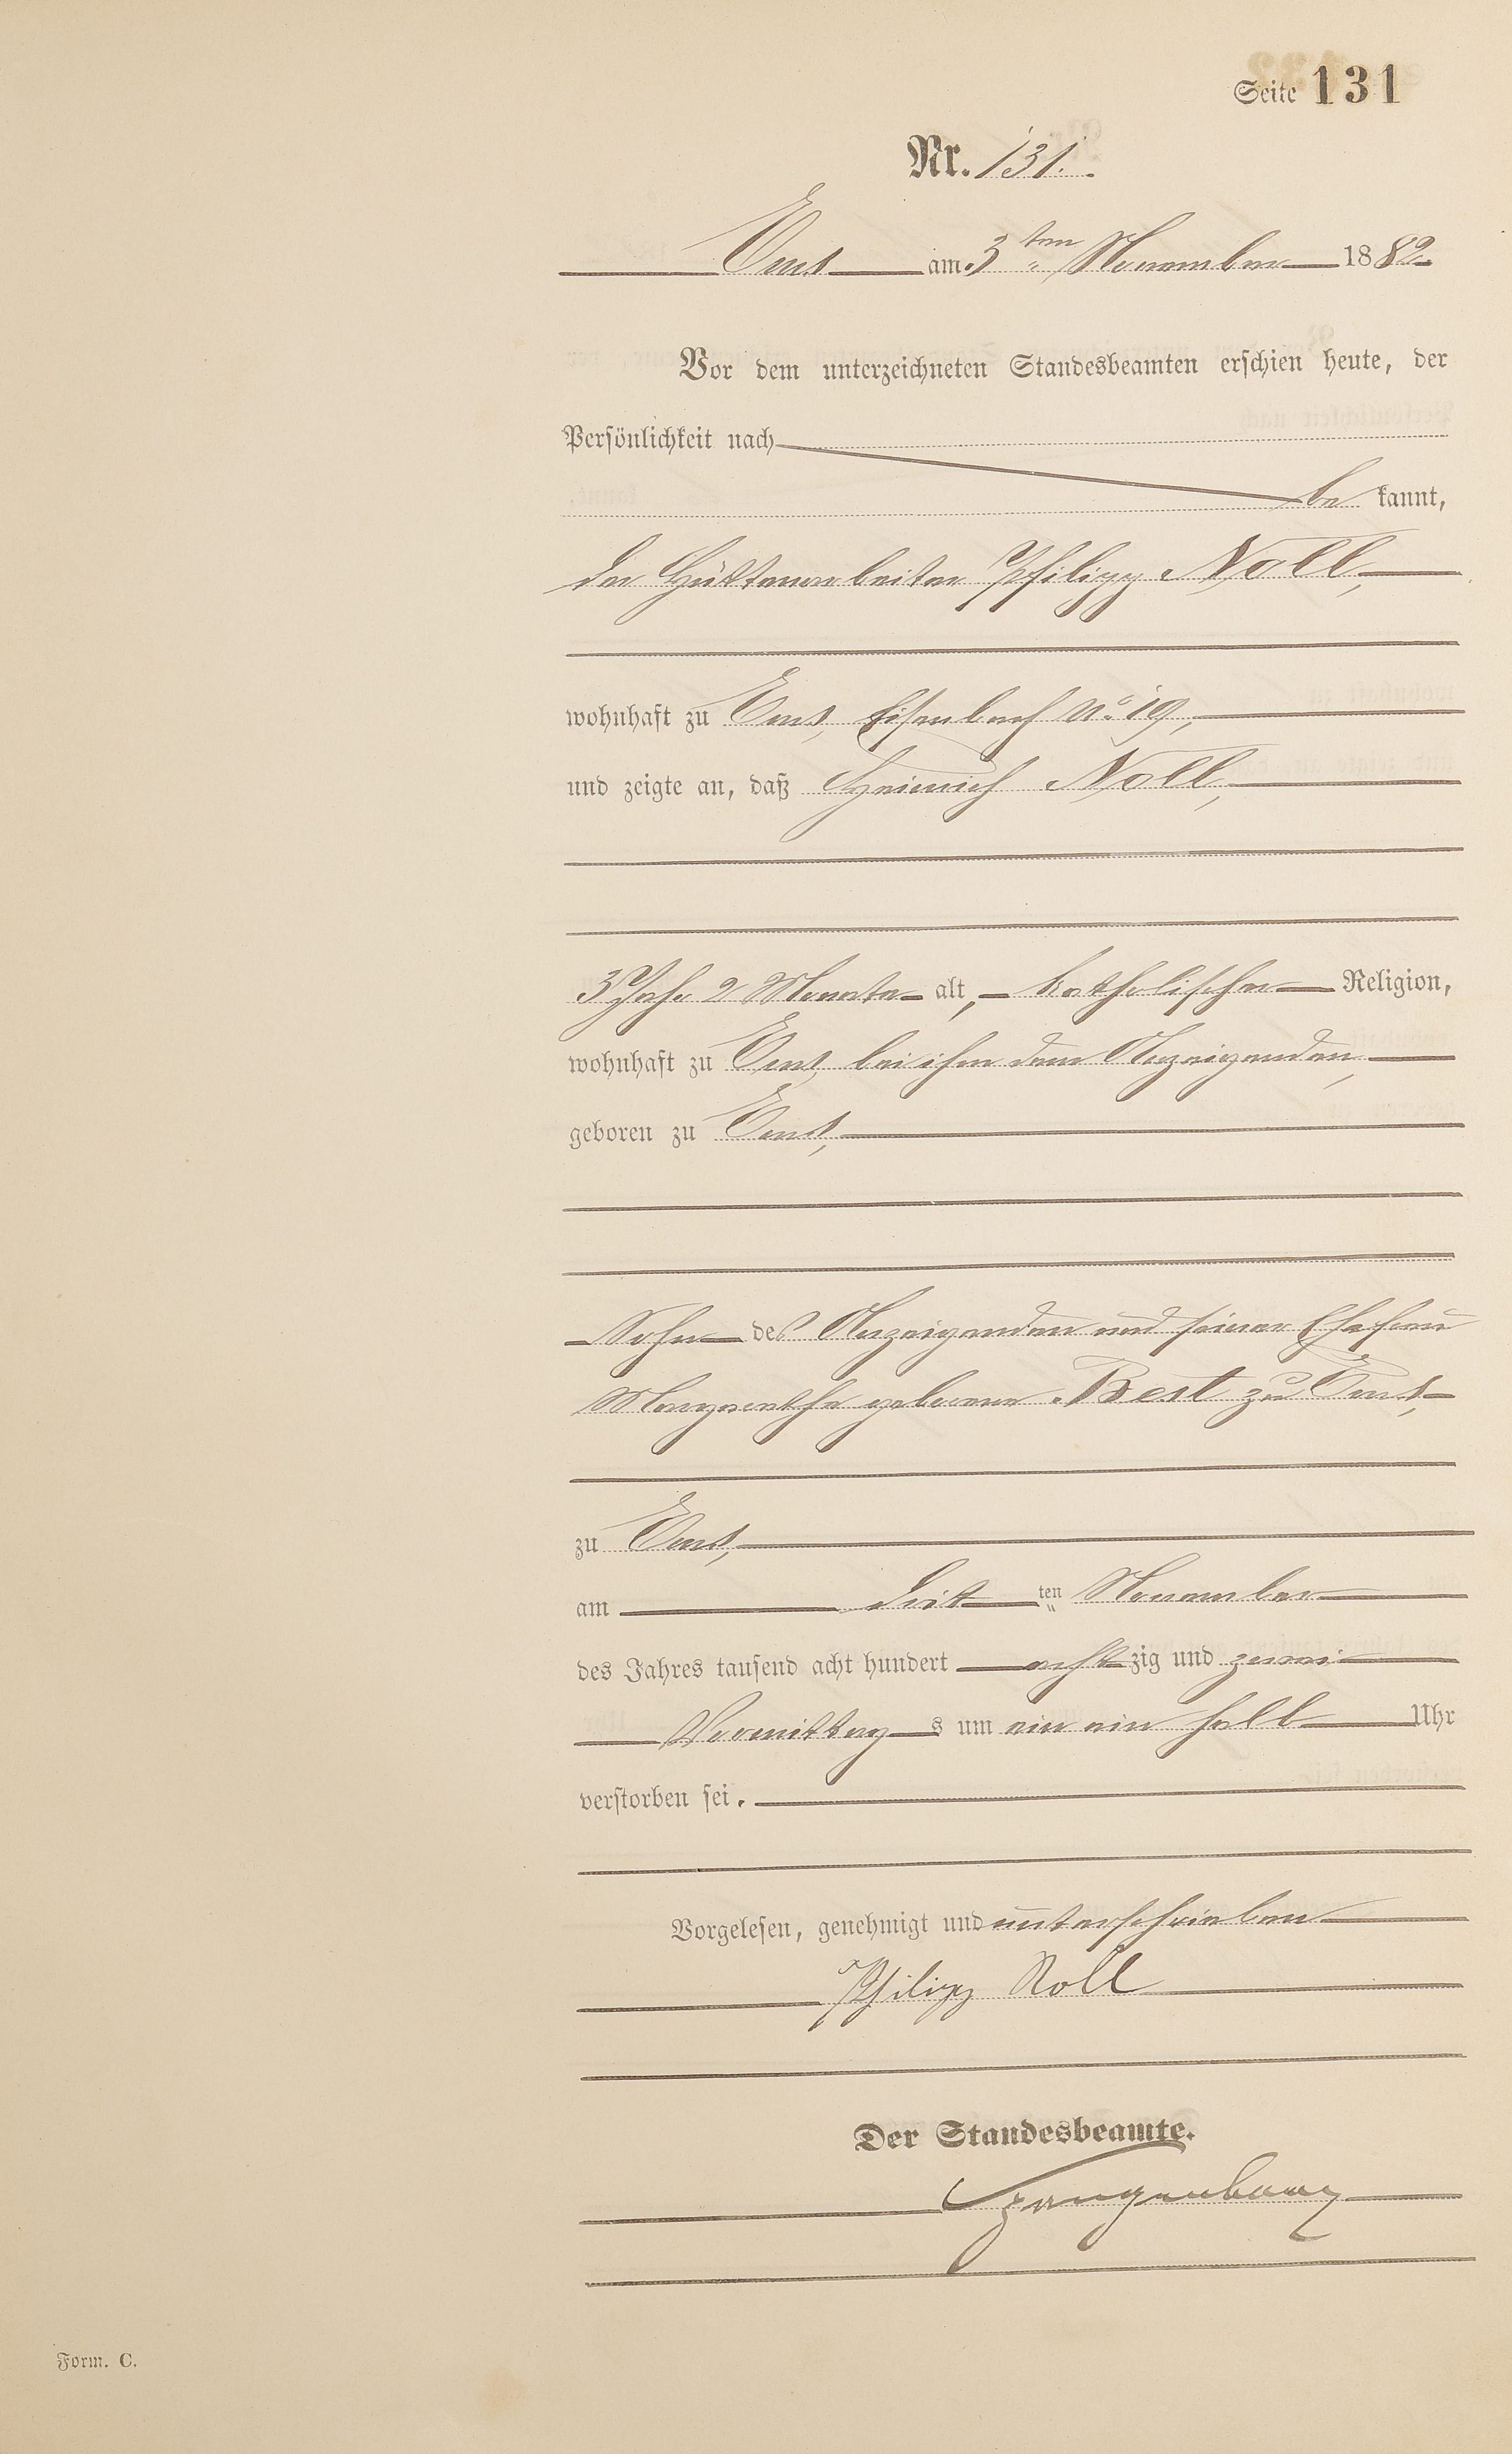 Seite 131
Nr. 131.
Ems am 3ten November 1882
Vor dem unterzeichneten Standesbeamten erschien heute, der
Persönlichkeit nach
be kannt,
der Hüttenarbeiter Philipp Noll,
wohnhaft zu Ems, Eisenbach No 19,
und zeigte an, daß Heinrich Noll,
3 Jahr 2 Monate alt, katholischer Religion,
wohnhaft zu Ems, bei ihm dem Anzeigenden,
geboren zu Ems,
Sohn des Anzeigenden und seiner Ehefrau
Margarethe geborene Best zu Ems,
zu Ems,
am dritten November
des Jahres tausend acht hundert achtzig und zwei
Vormittags um ein ein halb Uhr
verstorben sei.
Vorgelesen, genehmigt und unterschrieben
Philipp Noll
Der Standesbeamte.
Form. C.